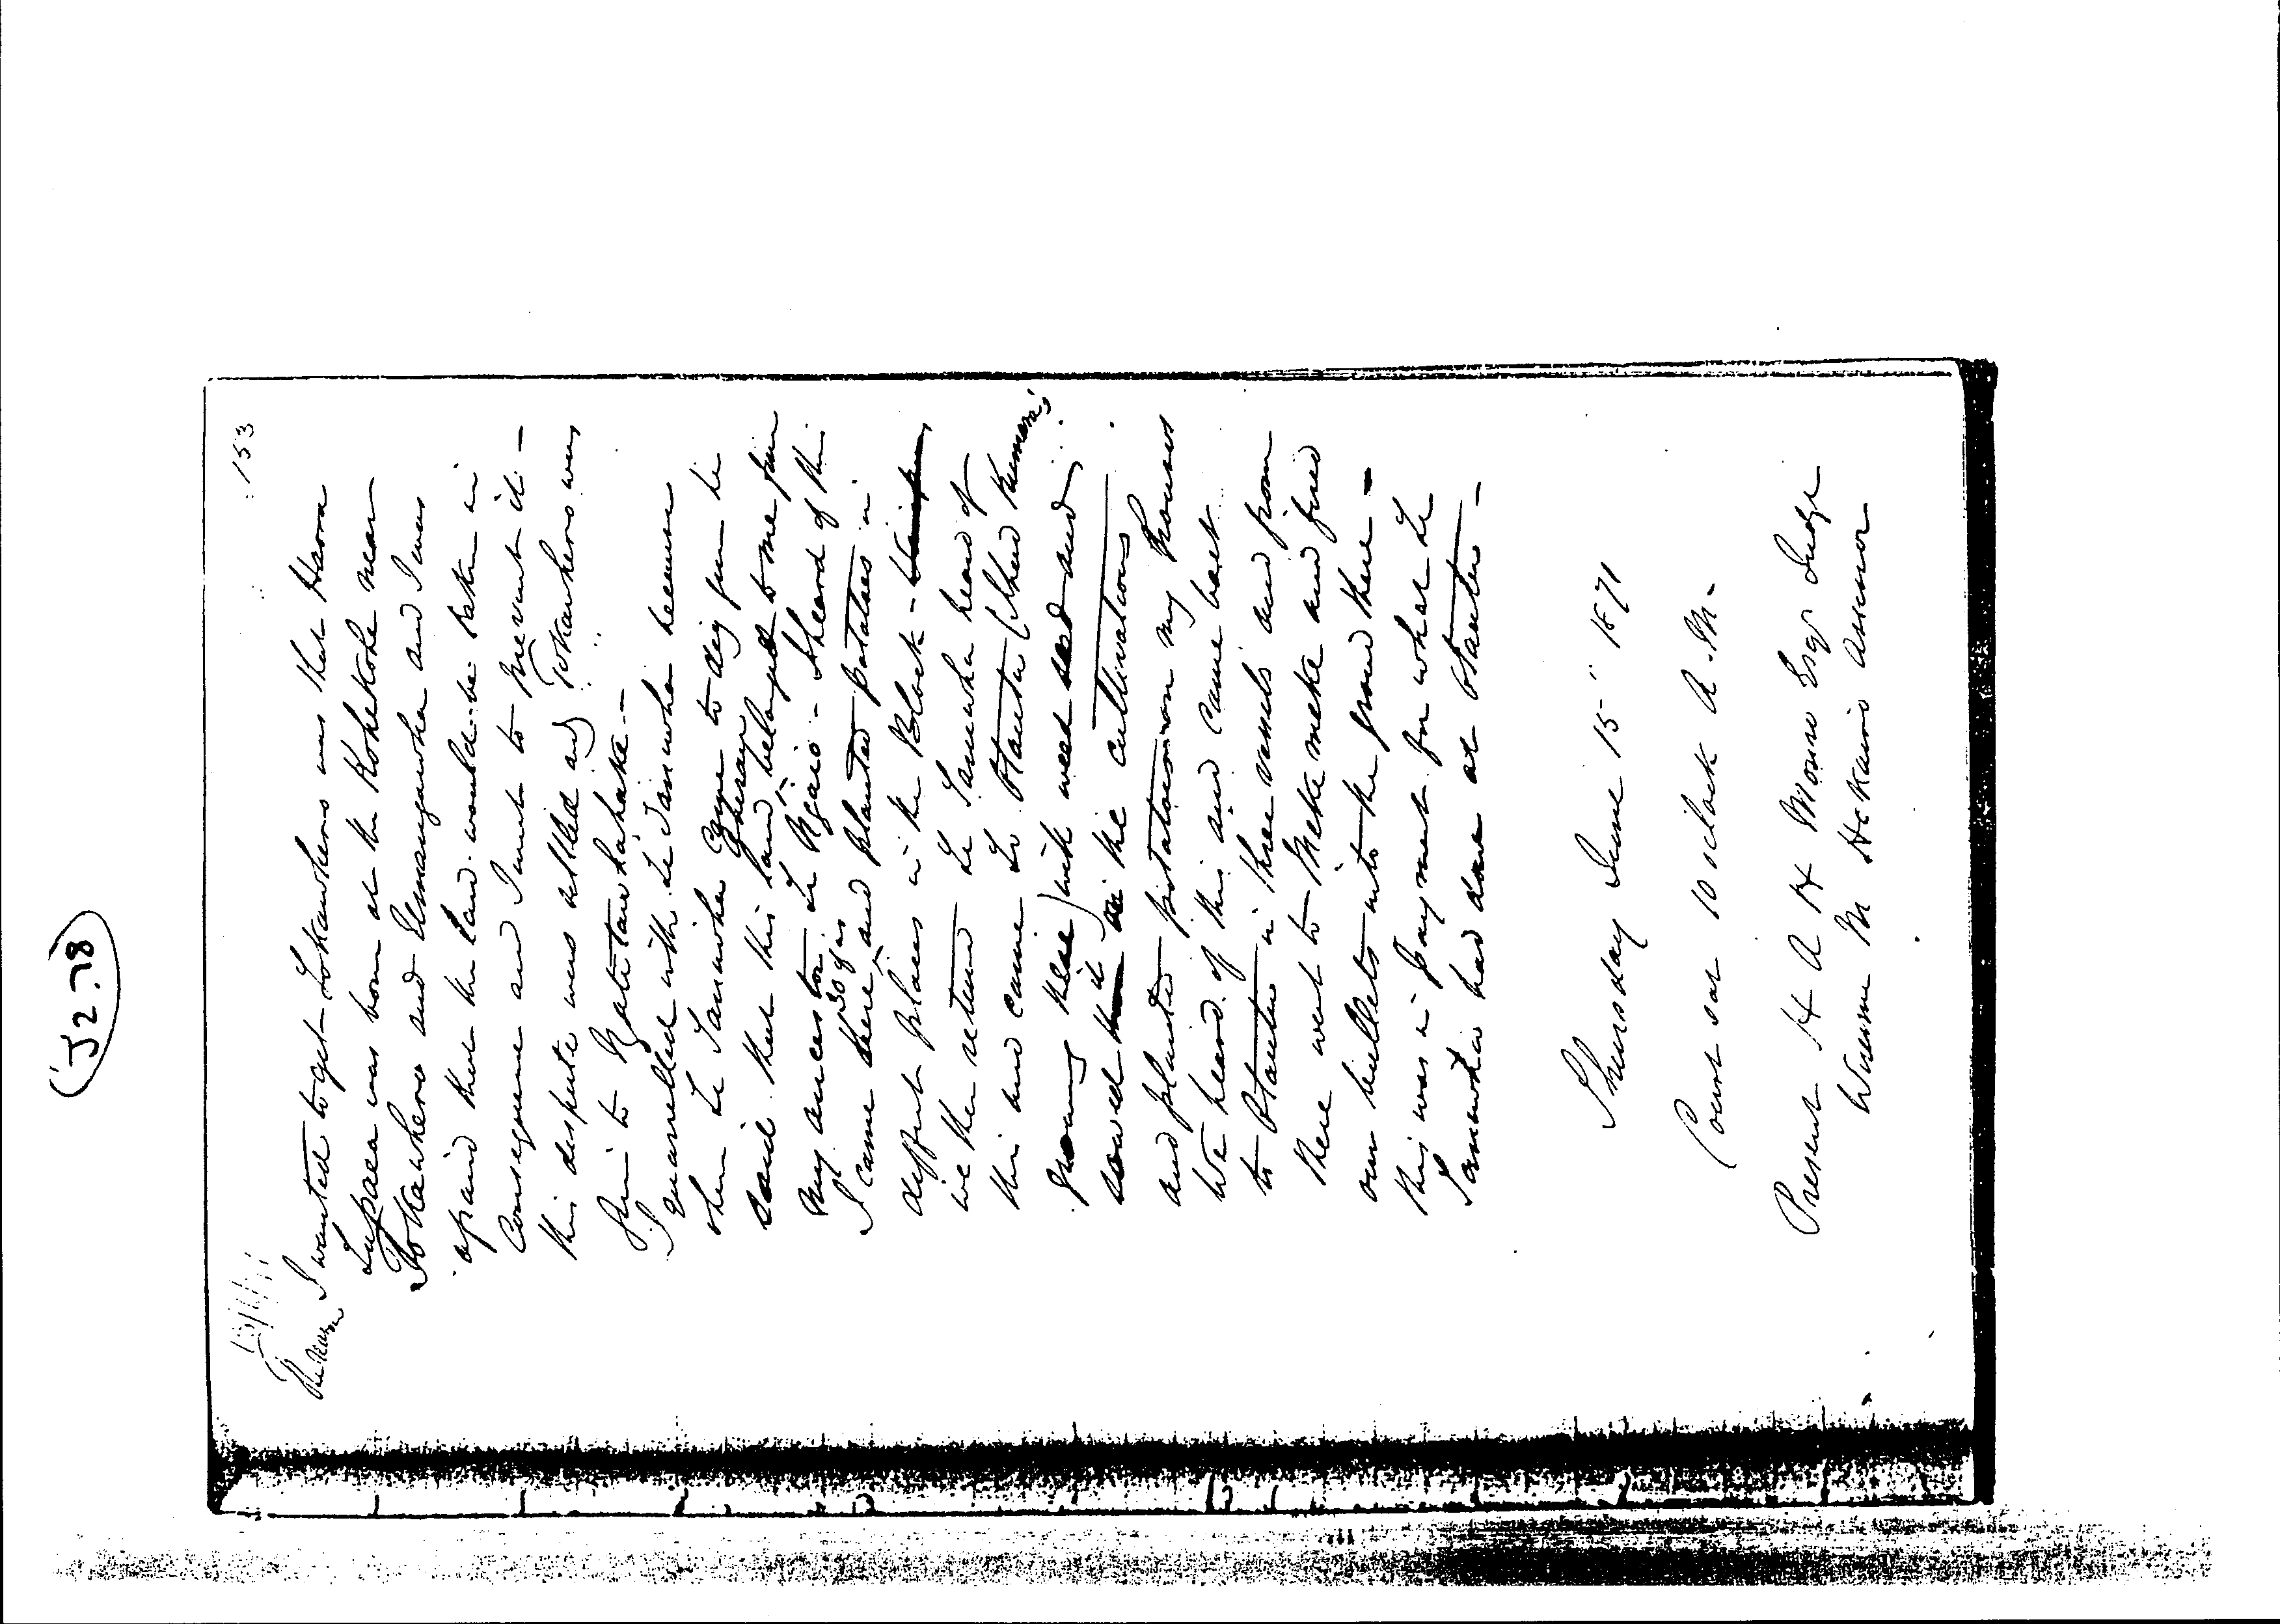 (J2.78)
153
The reason I wanted to get Tokawhero was that Haora
Tupaea was born at the Kohekohe near
Tokawhero and Umangawha and I was
afraid that the land would be taken in
consequence and I went to prevent it -
this dispute was settled and Tokawhero was
to
I quarrelled with Te Taniwha because
when Te Taniwha came to dig gum he
said that this land belonged to me from
my ancestor Te Ngaio - I heard of this
I came here and planted potatoes in
different places in the Block -
we then returned Te Taniwha heard of
this and came to Otautu (there kumera's
growing there) with weed seed and
sowed it in the cultivations
and planted potatoes on my
We heard of this and came back
to Otautu in three vessels and from
there went to Mekemeke and fired
our bullets into the ground there -
this was in payment for what Te
Taniwha had done at Otautu -
Thursday June 15" 1871
Court sat 10 oclock A.M.
Present H A H Monro Esqr Judge
Wiremu M Hekairo Assessor